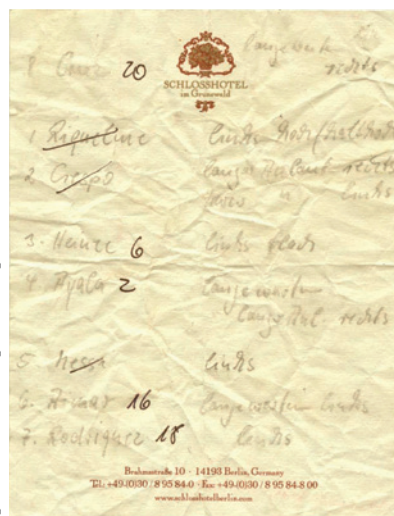 lange warten
8 20 rechts
SCHLOSSHOTEL
im Grunewald
1 Riquelme links hoch
2 Crespo langer Anlauf rechts
links
3. Heinze 6 links flach
4. Ayala 2 lange warten
langer Anl. rechts
5 Messi links
6. Aimar 16 lange warten links
7. Rodriguez 18 links
Brahmsstraße 10 · 14193 Berlin, Germany
Tel.: +49-(0)30 / 8 95 84-0 · Fax: +49-(0)30 / 8 95 84-8 00
www.schlosshotelberlin.com